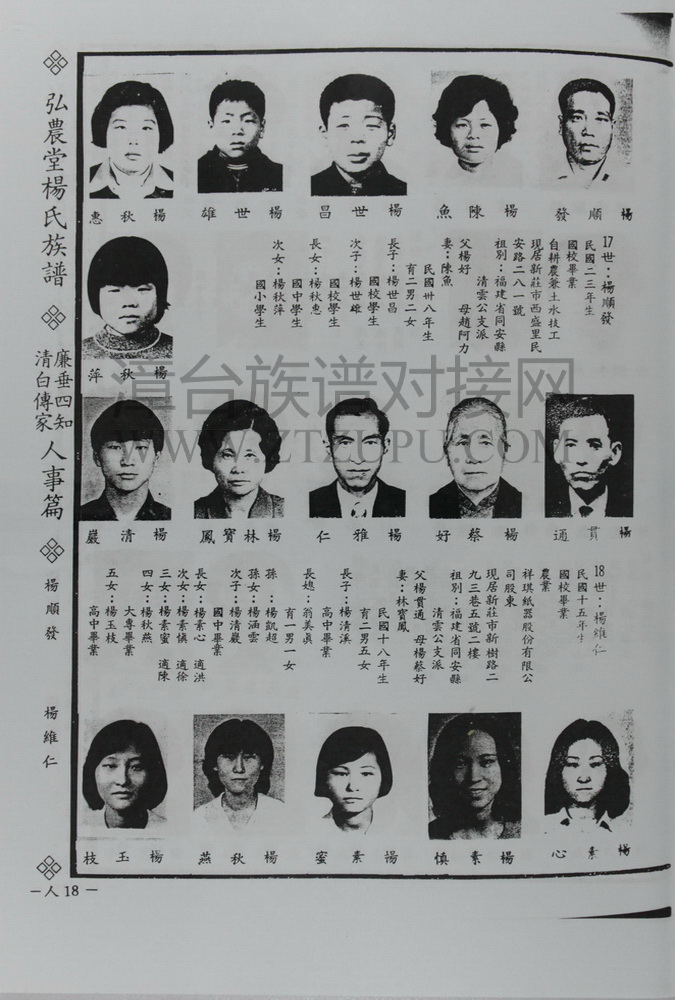 弘農堂楊氏族譜
廉垂四知
清白傳家
人事篇
楊順發
楊維仁
楊順發
楊陳魚
楊世昌
楊世雄
楊秋惠
17世：楊順發
民國二三年生
國校畢業
自耕農兼土水技工
現居新莊市西盛里民
安路二八一號
祖別：福建省同安縣
清雲公支派
父楊好　母趙阿力
妻：陳魚
民國卅八年生
育二男二女
長子：楊世昌
國校學生
次子：楊世雄
國校學生
長女：楊秋惠
國中學生
次女：楊秋萍
國小學生
楊秋萍
漳台族谱对接网
WWW.ZTZUPU.COM
楊貫通
楊蔡好
楊雅仁
楊林寶鳳
楊清巖
18世：楊維仁
民國十五年生
國校畢業
農業
祥琪紙器股份有限公
司股東
現居新莊市新樹路二
九三巷五號二樓
祖別：福建省同安縣
清雲公支派
父楊貫通　母楊蔡好
妻：林寶鳳
民國十八年生
育二男五女
長子：楊清溪
高中畢業
長媳：翁美真
育一男一女
孫：楊凱超
孫女：楊涵雲
次子：楊清巖
國中畢業
長女：楊素心　適洪
次女：楊素慎　適徐
三女：楊素蜜　適陳
四女：楊秋燕
大專畢業
五女：楊玉枝
高中畢業
楊素心
楊素慎
楊素蜜
楊秋燕
楊玉枝
－人18－